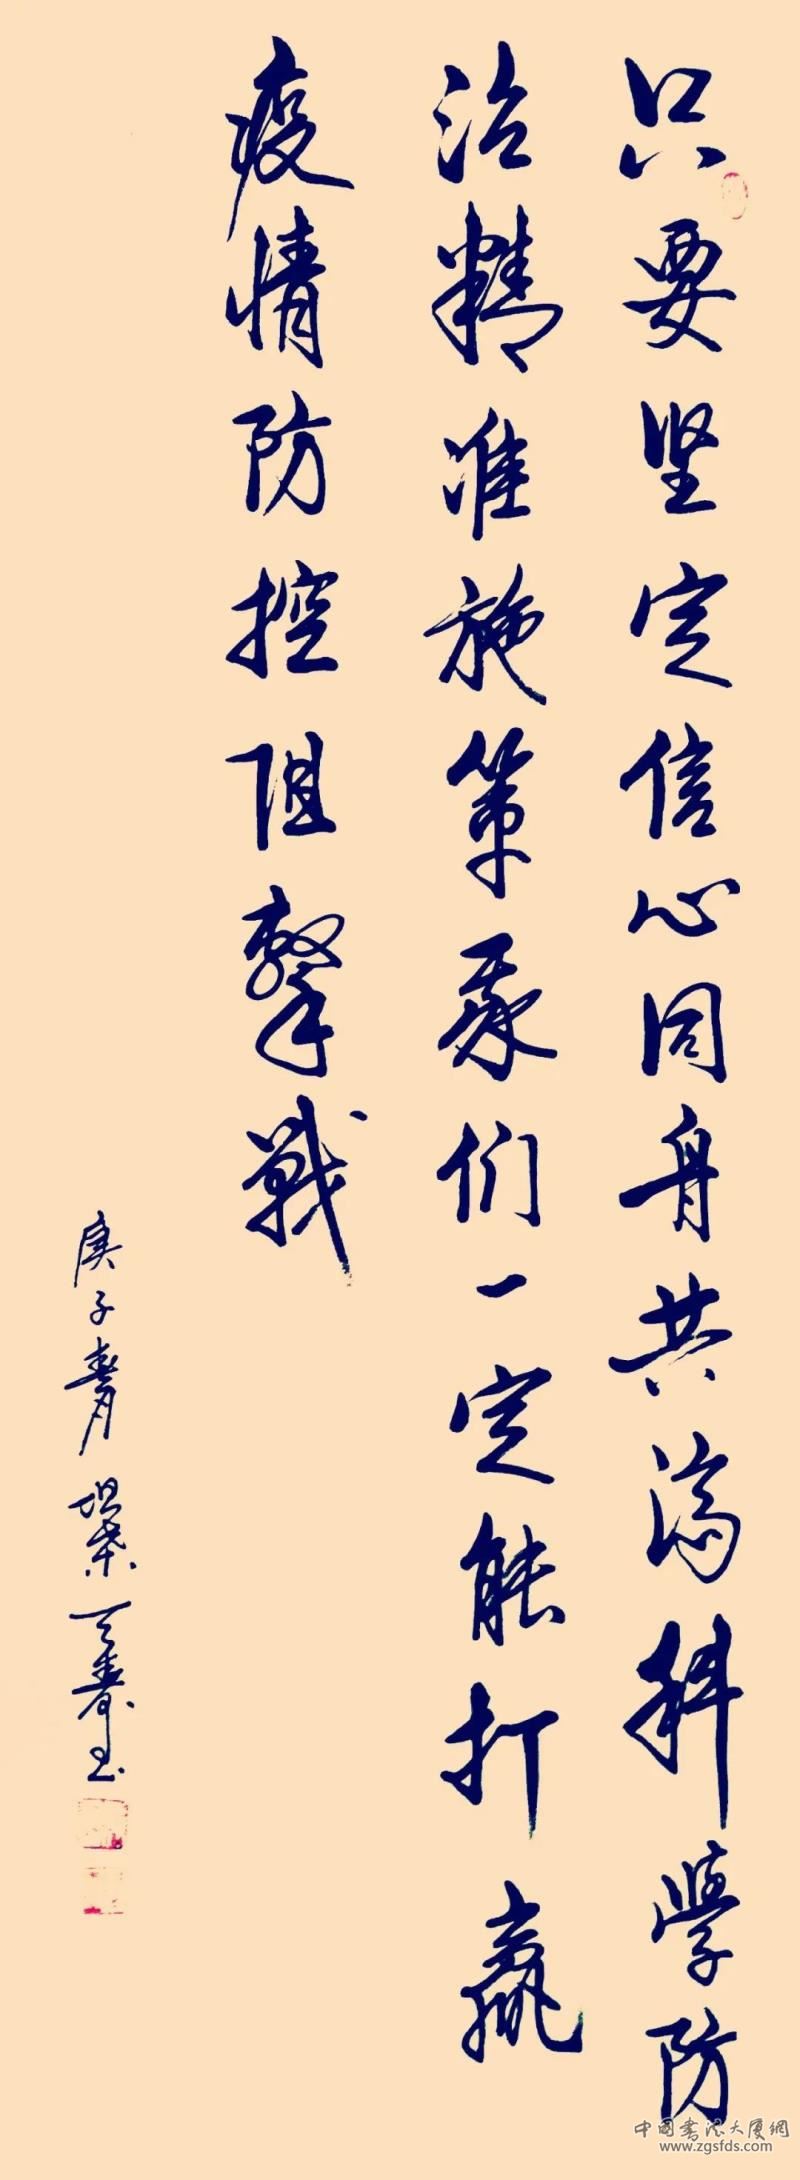 只要坚定信心同舟共济科学防
治精准施策我们一定能打赢
疫情防控阻击战
庚子青 书
中国书法大厦网
www.zgsfds.com